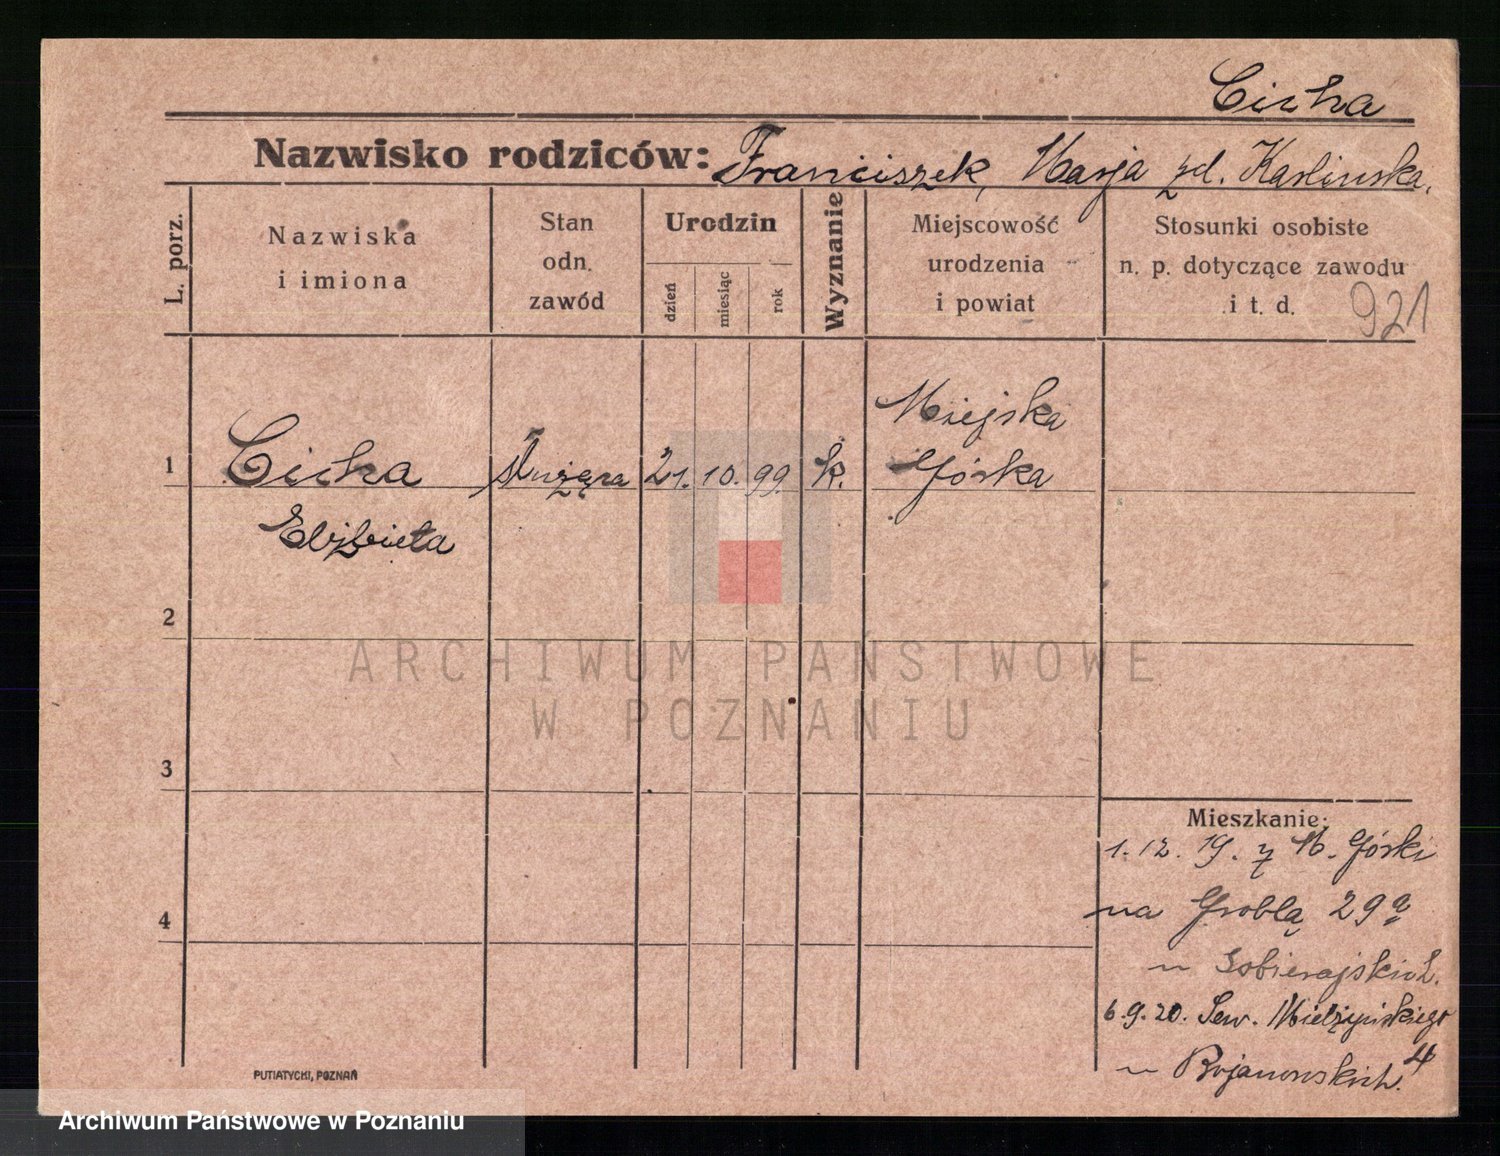 Cicha
Nazwisko rodziców: Franciszek, Marja zd. Karlinska.
L. porz.
Nazwiska
i imiona
Stan
odn.
zawód
Urodzin
dzień
miesiąc
rok
Wyznanie
Miejscowość
urodzenia
i powiat
Stosunki osobiste
n. p. dotyczące zawodu
i t. d.
921
1
Cicha
Elżbieta
służąca
21. 10. 99.
k.
Miejska
Górka
2
3
4
Mieszkanie:
1. 12. 19. z M. Górki
na Groblą 29a
u Sobierajskich.
6. 9. 20. Sew. Mielżyńskiego 4
u Bojanowskich.
PUTIATYCKI, POZNAŃ
ARCHIWUM PAŃSTWOWE
W POZNANIU
Archiwum Państwowe w Poznaniu